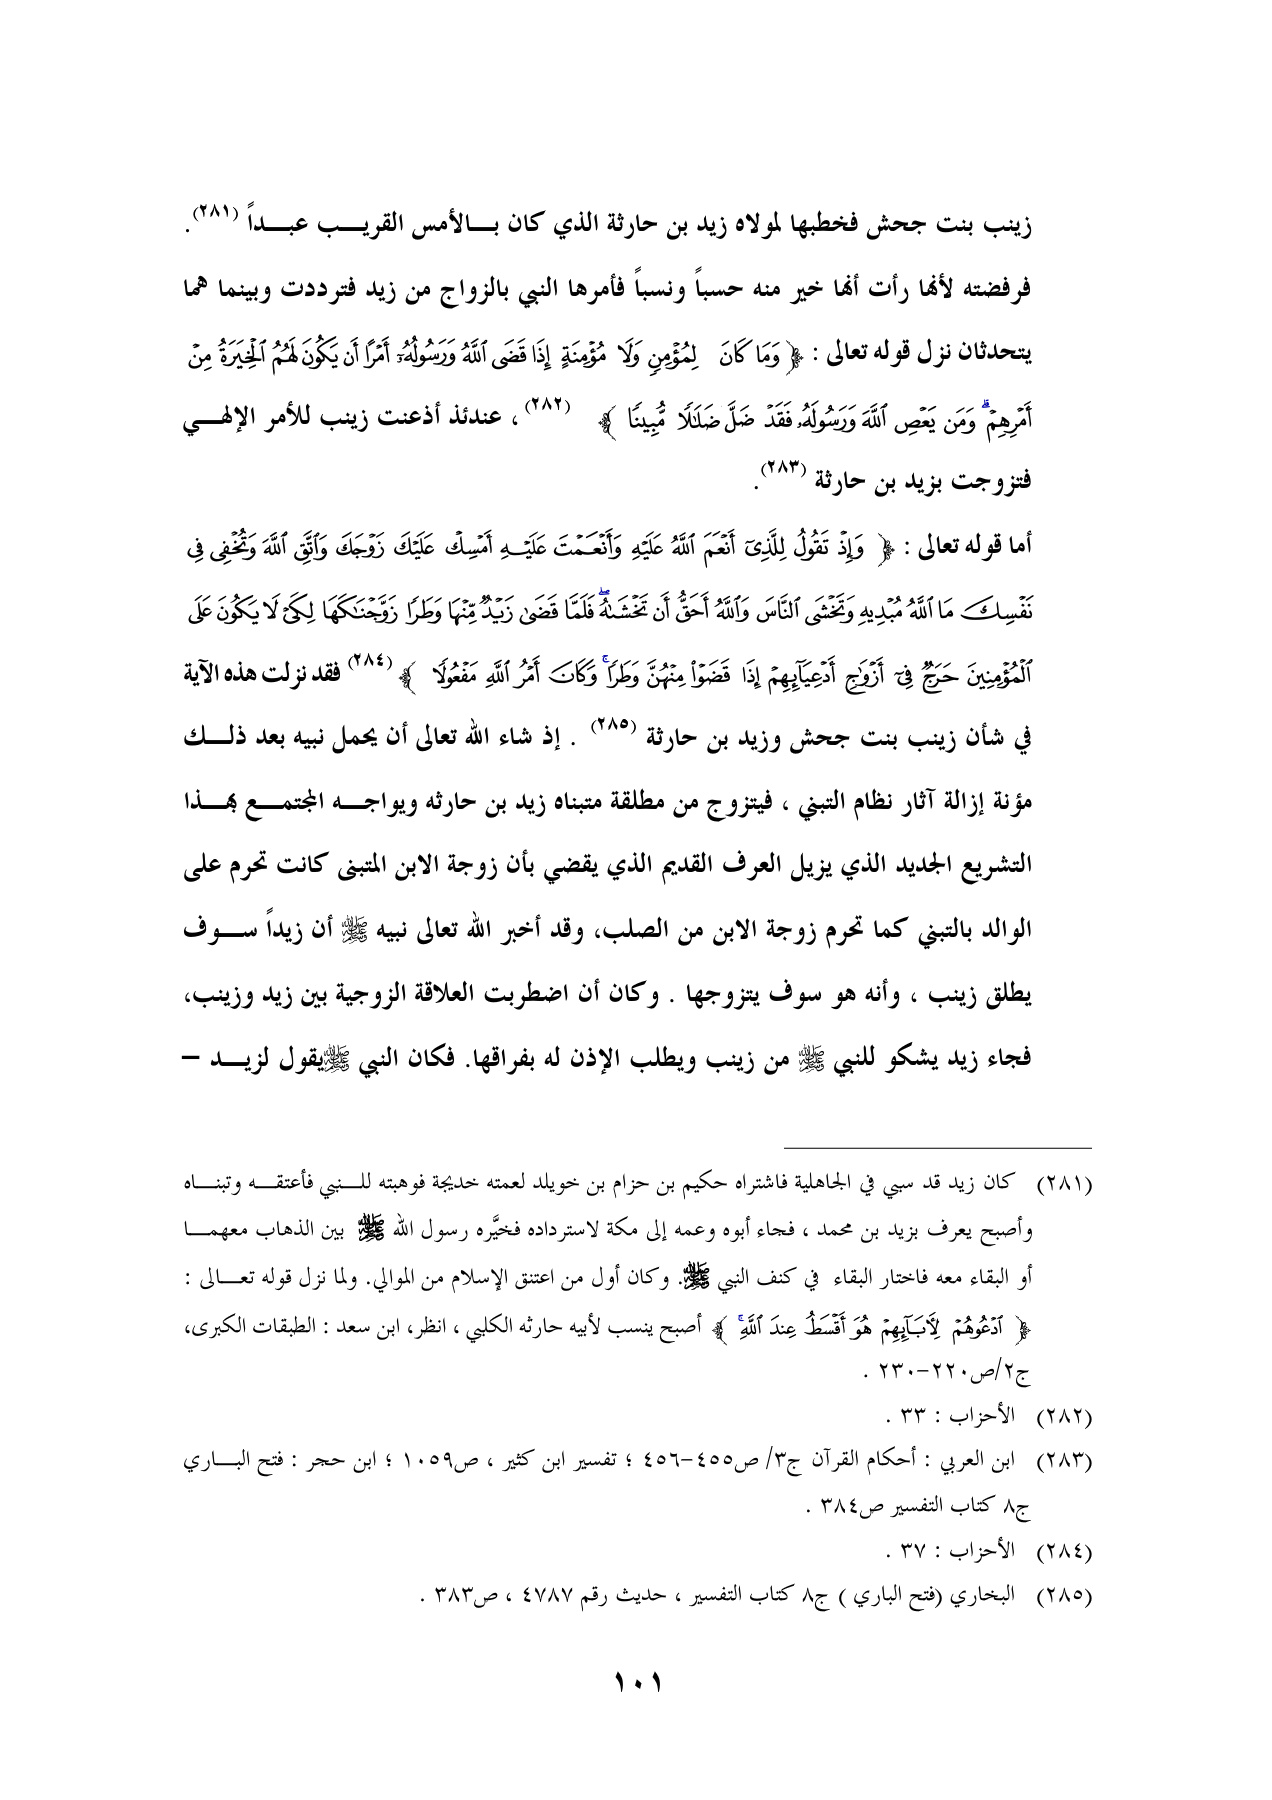 زينب بنت جحش فخطبها لمولاه زيد بن حارثة الذي كان بـالأمس القريـب عبـداً (٢٨١).
فرفضته لأنها رأت أنها خير منه حسباً ونسباً فأمرها النبي بالزواج من زيد فترددت وبينما هما
يتحدثان نزل قوله تعالى : ﴿ وَمَا كَانَ لِمُؤْمِنٍ وَلَا مُؤْمِنَةٍ إِذَا قَضَى ٱللَّهُ وَرَسُولُهُۥٓ أَمْرًا أَن يَكُونَ لَهُمُ ٱلْخِيَرَةُ مِنْ
أَمْرِهِمْ ۗ وَمَن يَعْصِ ٱللَّهَ وَرَسُولَهُۥ فَقَدْ ضَلَّ ضَلَٰلًا مُّبِينًا ﴾ (٢٨٢) ، عندئذ أذعنت زينب للأمر الإلهـي
فتزوجت بزيد بن حارثة (٢٨٣).
أما قوله تعالى : ﴿ وَإِذْ تَقُولُ لِلَّذِىٓ أَنْعَمَ ٱللَّهُ عَلَيْهِ وَأَنْعَمْتَ عَلَيْهِ أَمْسِكْ عَلَيْكَ زَوْجَكَ وَٱتَّقِ ٱللَّهَ وَتُخْفِى فِى
نَفْسِكَ مَا ٱللَّهُ مُبْدِيهِ وَتَخْشَى ٱلنَّاسَ وَٱللَّهُ أَحَقُّ أَن تَخْشَىٰهُ ۖ فَلَمَّا قَضَىٰ زَيْدٌ مِّنْهَا وَطَرًا زَوَّجْنَٰكَهَا لِكَىْ لَا يَكُونَ عَلَى
ٱلْمُؤْمِنِينَ حَرَجٌ فِىٓ أَزْوَٰجِ أَدْعِيَآئِهِمْ إِذَا قَضَوْا۟ مِنْهُنَّ وَطَرًا ۚ وَكَانَ أَمْرُ ٱللَّهِ مَفْعُولًا ﴾ (٢٨٤) فقد نزلت هذه الآية
في شأن زينب بنت جحش وزيد بن حارثة (٢٨٥) . إذ شاء الله تعالى أن يحمل نبيه بعد ذلـك
مؤنة إزالة آثار نظام التبني ، فيتزوج من مطلقة متبناه زيد بن حارثه ويواجـه المجتمـع بهـذا
التشريع الجديد الذي يزيل العرف القديم الذي يقضي بأن زوجة الابن المتبنى كانت تحرم على
الوالد بالتبني كما تحرم زوجة الابن من الصلب، وقد أخبر الله تعالى نبيه ﷺ أن زيداً سـوف
يطلق زينب ، وأنه هو سوف يتزوجها . وكان أن اضطربت العلاقة الزوجية بين زيد وزينب،
فجاء زيد يشكو للنبي ﷺ من زينب ويطلب الإذن له بفراقها. فكان النبي ﷺيقول لزيـد –
(٢٨١) كان زيد قد سبي في الجاهلية فاشتراه حكيم بن حزام بن خويلد لعمته خديجة فوهبته للـنبي فأعتقـه وتبنـاه
وأصبح يعرف بزيد بن محمد ، فجاء أبوه وعمه إلى مكة لاسترداده فخيَّره رسول الله ﷺ بين الذهاب معهمـا
أو البقاء معه فاختار البقاء في كنف النبي ﷺ. وكان أول من اعتنق الإسلام من الموالي. ولما نزل قوله تعـالى :
﴿ ٱدْعُوهُمْ لِأَبَآئِهِمْ هُوَ أَقْسَطُ عِندَ ٱللَّهِ ۚ ﴾ أصبح ينسب لأبيه حارثه الكلبي ، انظر، ابن سعد : الطبقات الكبرى،
ج٢/ص٢٢٠–٢٣٠ .
(٢٨٢) الأحزاب : ٣٣ .
(٢٨٣) ابن العربي : أحكام القرآن ج٣/ ص٤٥٥–٤٥٦ ؛ تفسير ابن كثير ، ص١٠٥٩ ؛ ابن حجر : فتح البـاري
ج٨ كتاب التفسير ص٣٨٤ .
(٢٨٤) الأحزاب : ٣٧ .
(٢٨٥) البخاري (فتح الباري ) ج٨ كتاب التفسير ، حديث رقم ٤٧٨٧ ، ص٣٨٣ .
١٠١